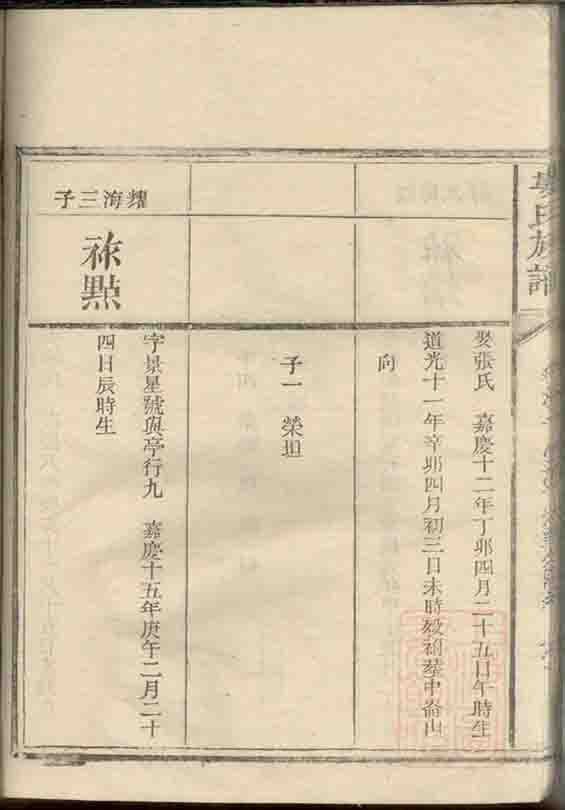 氏族譜
娶張氏 嘉慶十二年丁卯四月二十五日午時生
道光十一年辛卯四月初三日未時歿祔塟中崙山
向
子一 榮坦
耀海三子
祢點
字景星號與亭行九 嘉慶十五年庚午二月二十
四日辰時生